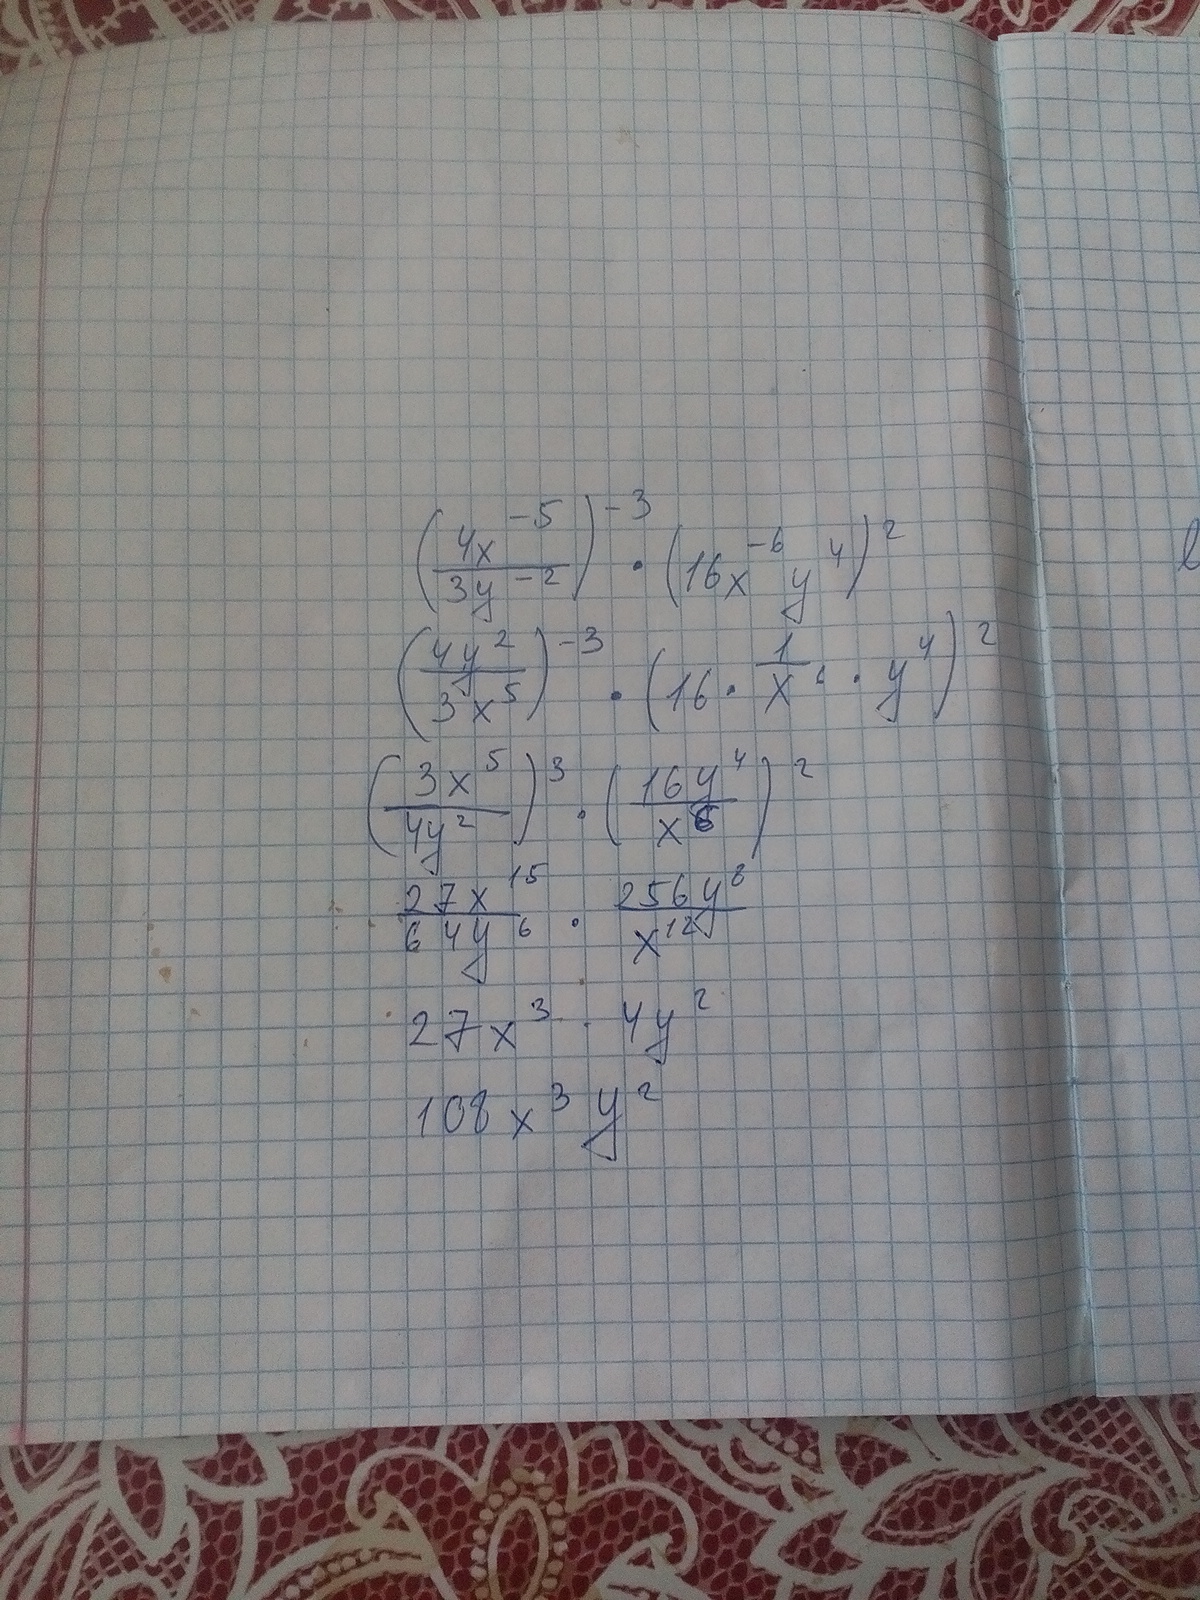 (4x⁻⁵/3y⁻²)⁻³ · (16x⁻⁶y⁴)²
(4y²/3x⁵)⁻³ · (16 · 1/x⁶ · y⁴)²
(3x⁵/4y²)³ · (16y⁴/x⁶)²
27x¹⁵/64y⁶ · 256y⁸/x¹²
27x³ · 4y²
108x³y²